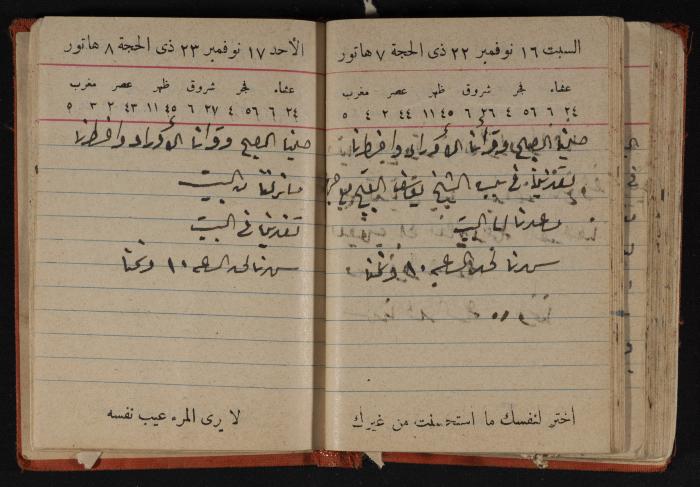 السبت ١٦ نوفمبر ٢٢ ذى الحجة ٧ هاتور
عشاء فجر شروق ظهر عصر مغرب
٦ ٢٤ ٦ ٥٦ ٤ ٢٦ ٦ ٤٥ ١١ ٤٤ ٢ ٤ ٥
صلينا الصبح وقرأنا الأوراد وافطرنا
تغدينا في بيت الشيخ يوسف
وعدنا الى البيت
سهرنا لحد الساعه ١٠ ونمنا
اختر لنفسك ما استحسنت من غيرك
الأحد ١٧ نوفمبر ٢٣ ذى الحجة ٨ هاتور
عشاء فجر شروق ظهر عصر مغرب
٦ ٢٤ ٦ ٥٦ ٤ ٢٧ ٦ ٤٥ ١١ ٤٣ ٢ ٣ ٥
صلينا الصبح وقرأنا الأوراد وافطرنا
ما نزلنا من البيت
تغدينا في البيت
سهرنا لحد الساعه ١٠ ونمنا
لا يرى المرء عيب نفسه